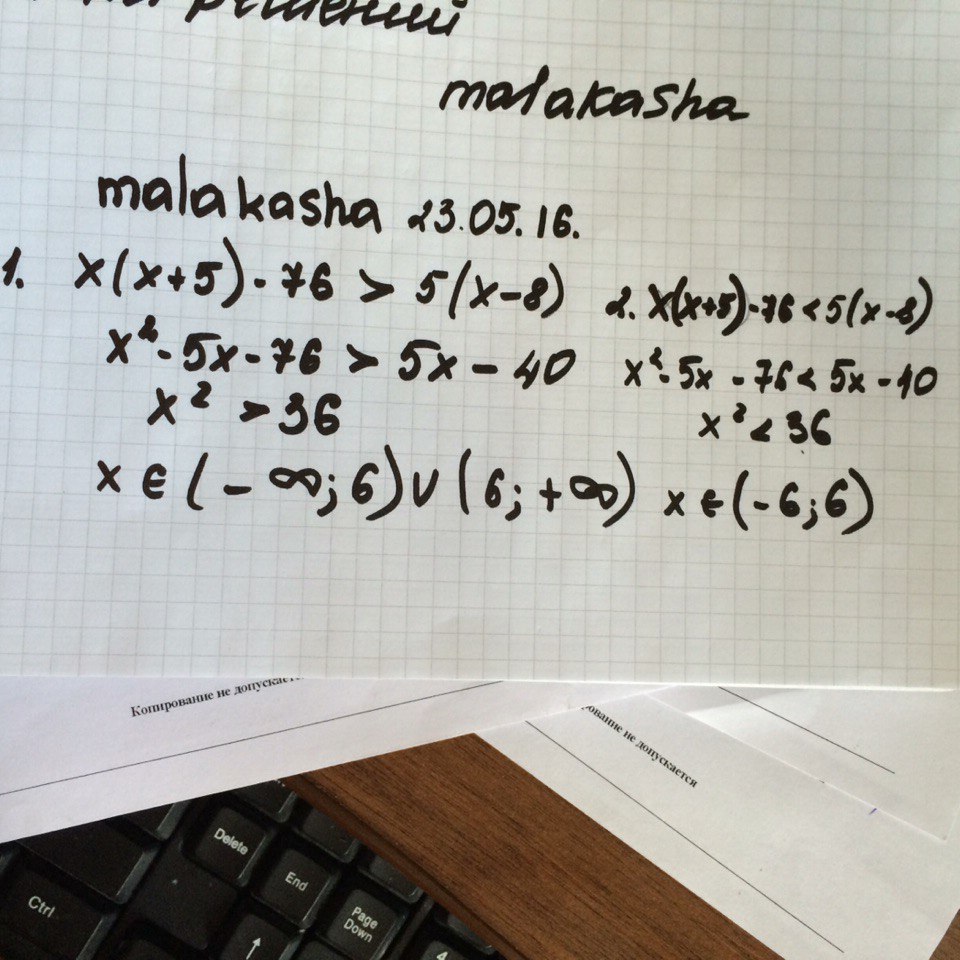 решений
malakasha
malakasha 23.05.16.
1. x(x+5)-76 > 5(x-8)
x²-5x-76 > 5x-40
x² > 36
x ∈ (-∞;6)∪(6;+∞)
2. x(x+5)-76<5(x-8)
x²-5x-76<5x-40
x²<36
x ∈ (-6;6)
Копирование не допускается
рование не допускается
Delete
End
Ctrl
Page
Down
↑
4